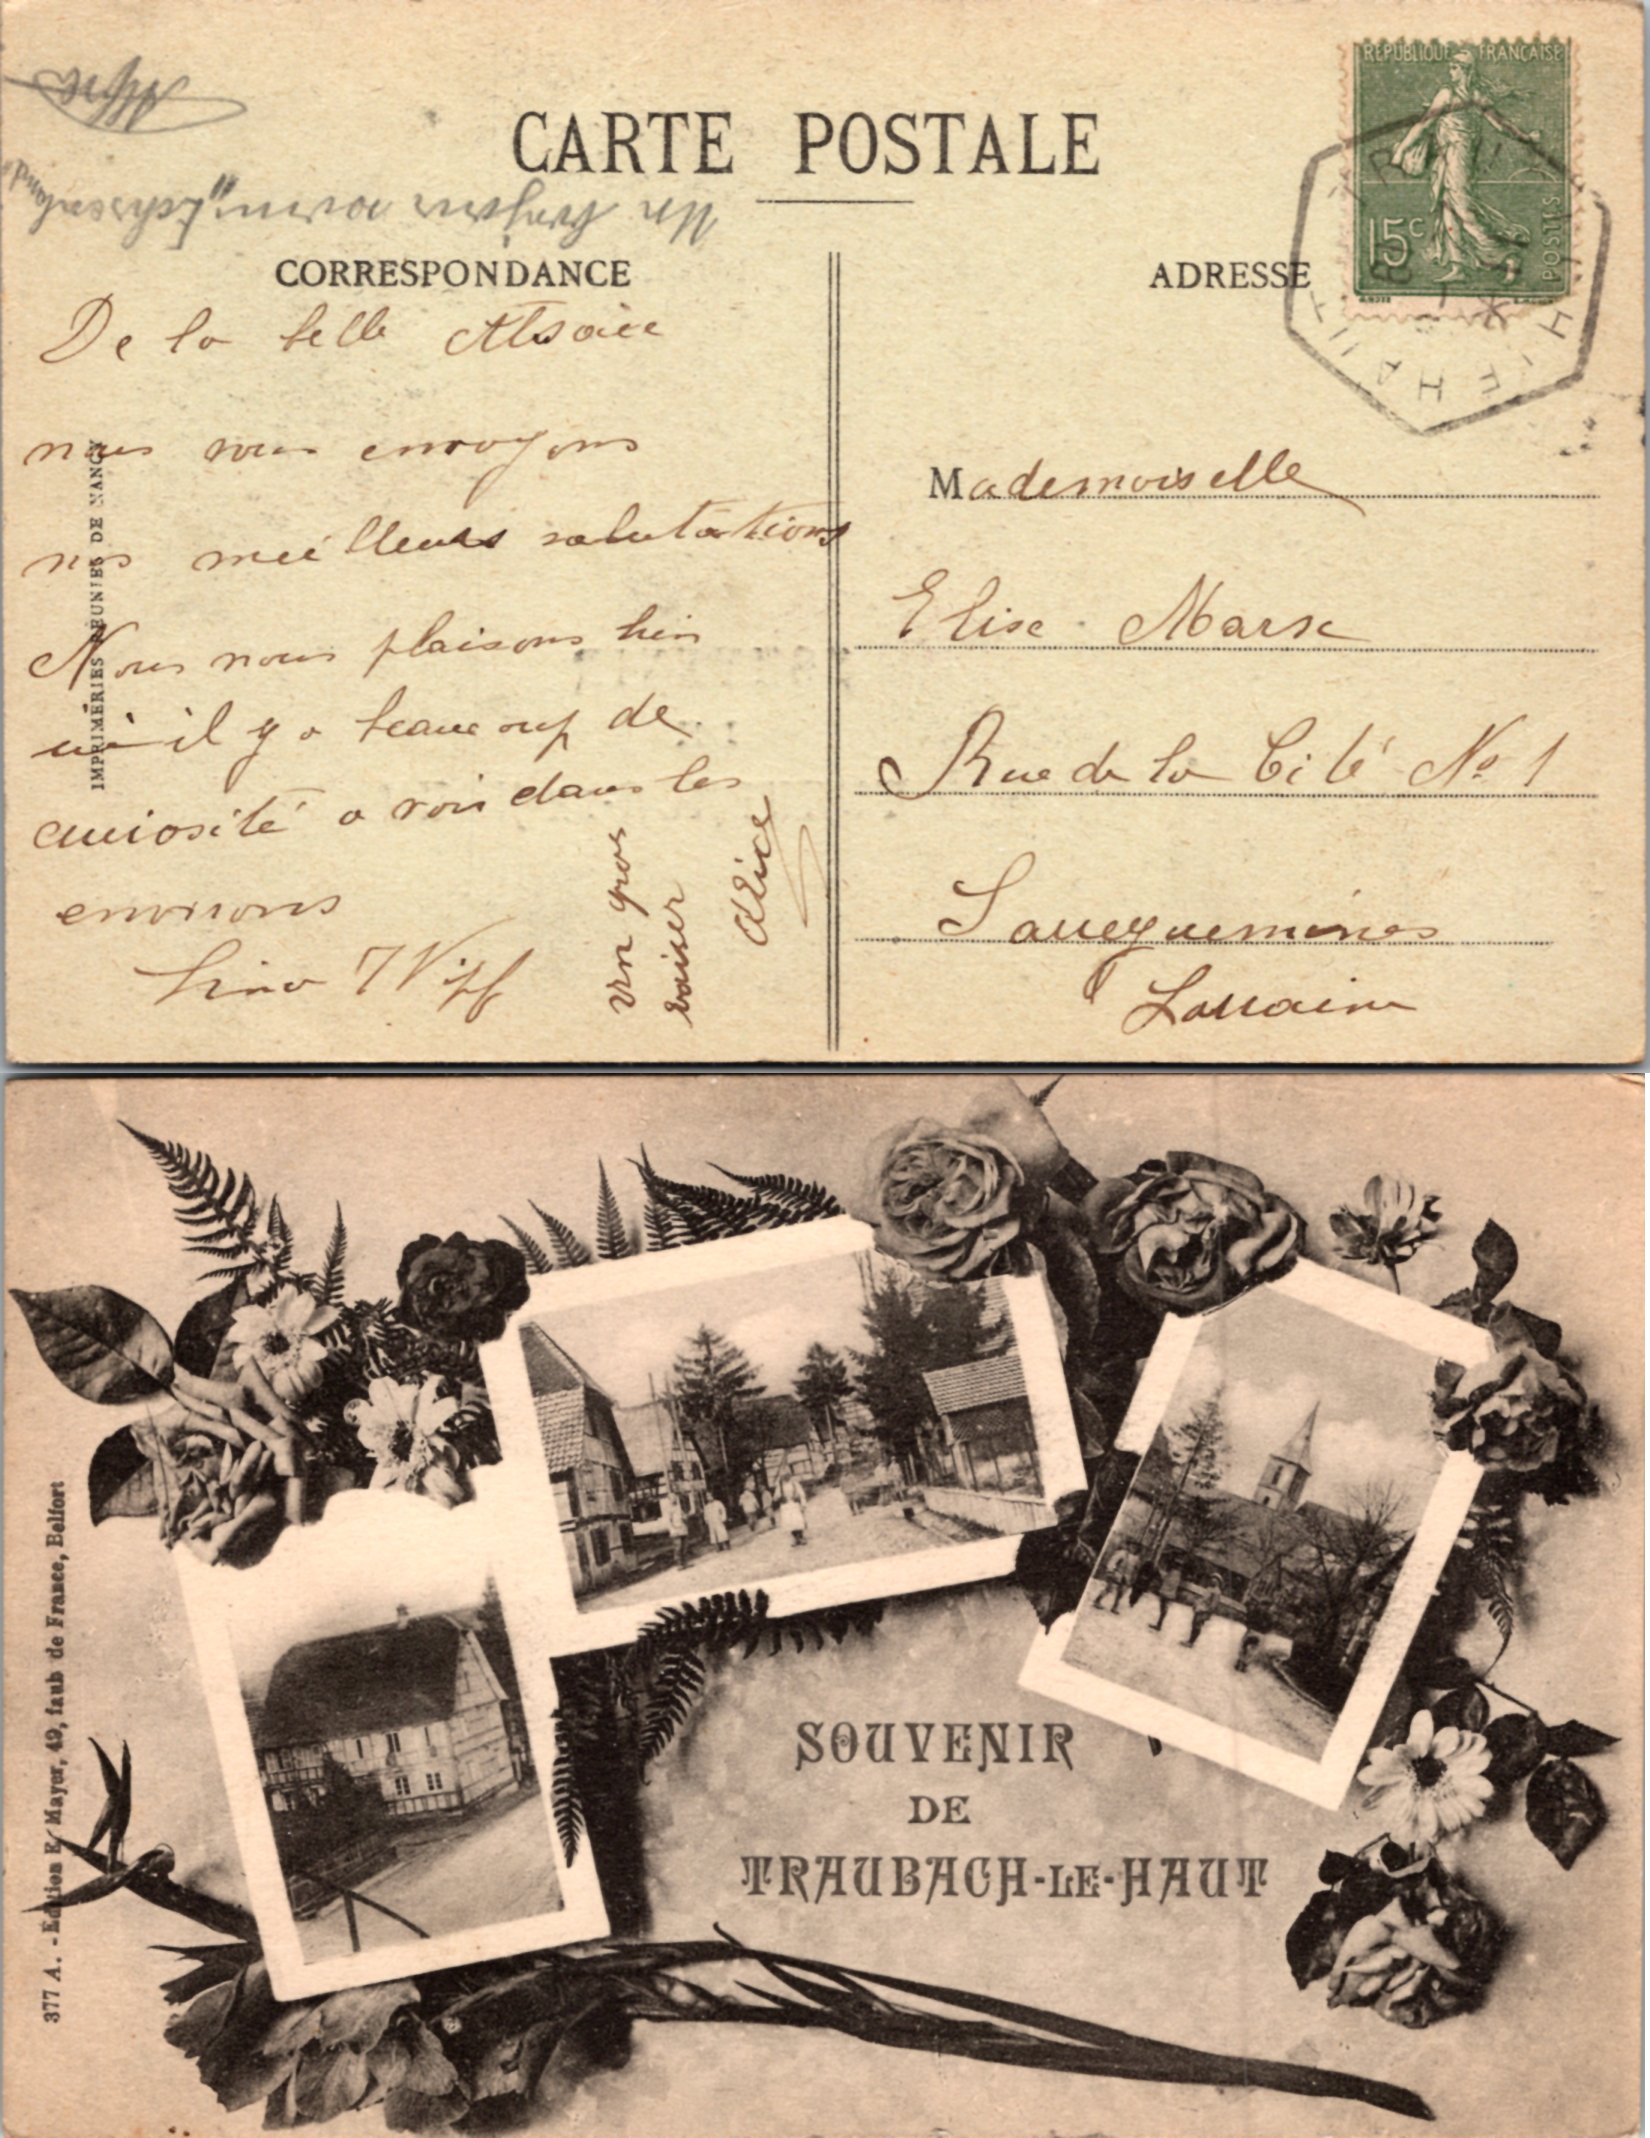 CARTE POSTALE
CORRESPONDANCE
ADRESSE
REPUBLIQUE FRANÇAISE
15c
POSTES
IMPRIMERIES REUNIES DE NANCY
Un bonjour
De la belle Alsace
nous vous envoyons
nos meilleurs salutations
Nous nous plaisons bien
il y a beaucoup de
curiosité a voir dans les
environs
un gros
baiser
Alice
Mademoiselle
Elise
Rue de la Cité No 1
Sarreguemines
Lorraine
377 A. - Edition E. Mayer, 49, faub de France, Belfort
SOUVENIR
DE
TRAUBACH-LE-HAUT